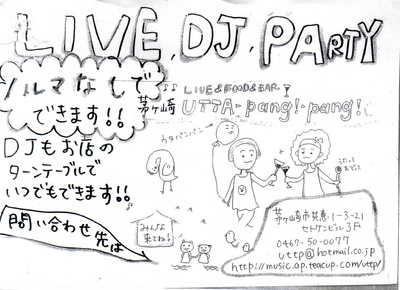 LIVE, DJ, PARTY
ノルマなしで
できます!!
茅ヶ崎
LIVE&FOOD&BAR
UTTA・pang!・pang!
DJもお店の
ターンテーブルで
いつでもできます!!
ウタパンパン
うたって
おどって
みんな
来てね!
問い合わせ
先は
茅ヶ崎市共恵1-3-21
セトケンビル3F
0467-50-0077
uttp@hotmail.co.jp
http://music.ap.teacup.com/uttp/